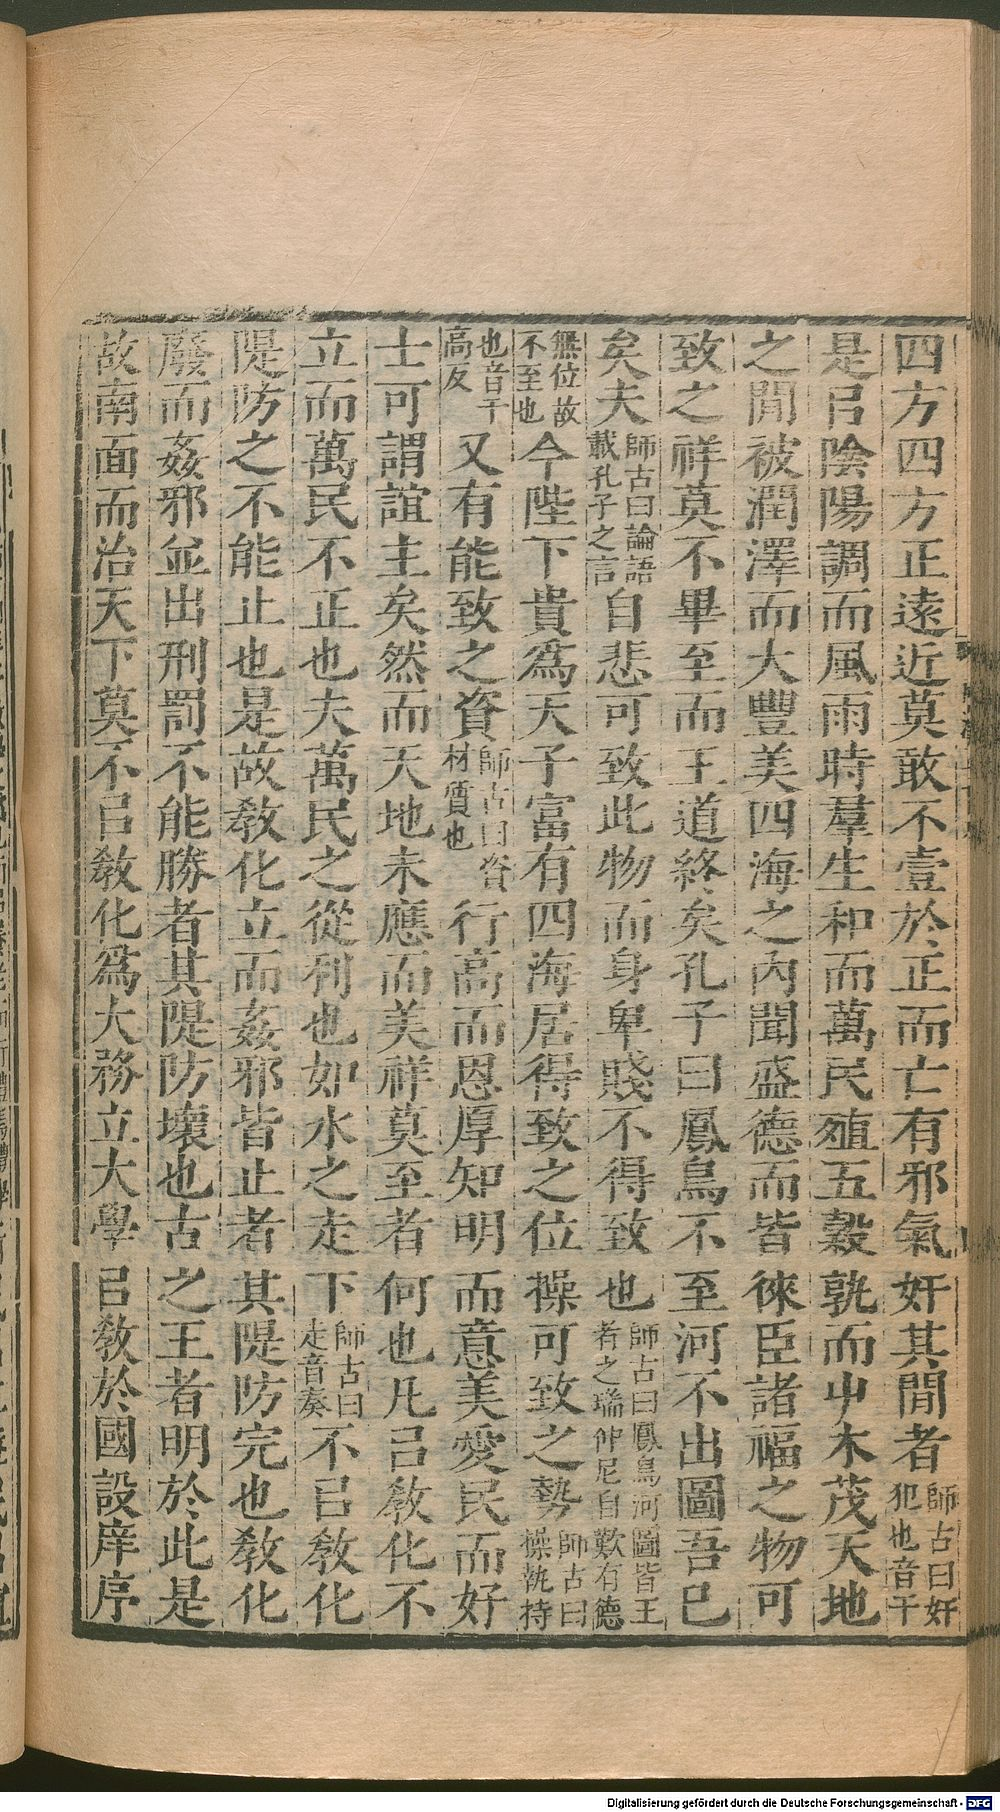 四方四方正遠近莫敢不壹於正而亡有邪氣奸其間者師古曰奸犯也音干
是㠯陰陽調而風雨時羣生和而萬民殖五穀孰而屮木茂天地
之閒被潤澤而大豐美四海之內聞盛德而皆徠臣諸福之物可
致之祥莫不畢至而王道終矣孔子曰鳳鳥不至河不出圖吾已
矣夫師古曰論語載孔子之言自悲可致此物而身卑賤不得致也師古曰鳳鳥河圖皆王者之瑞仲尼自歎有德
無位故不至也今陛下貴爲天子富有四海居得致之位操可致之勢師古曰操執持
也音千高反又有能致之資師古曰資材質也行高而恩厚知明而意美愛民而好
士可謂誼主矣然而天地未應而美祥莫至者何也凡㠯敎化不
立而萬民不正也夫萬民之從利也如水之走下師古曰走音奏不㠯敎化
隄防之不能止也是故敎化立而姦邪皆止者其隄防完也敎化
廢而姦邪並出刑罰不能勝者其隄防壞也古之王者明於此是
故南面而治天下莫不㠯敎化爲大務立大學㠯敎於國設庠序
Digitalisierung gefördert durch die Deutsche Forschungsgemeinschaft - DFG